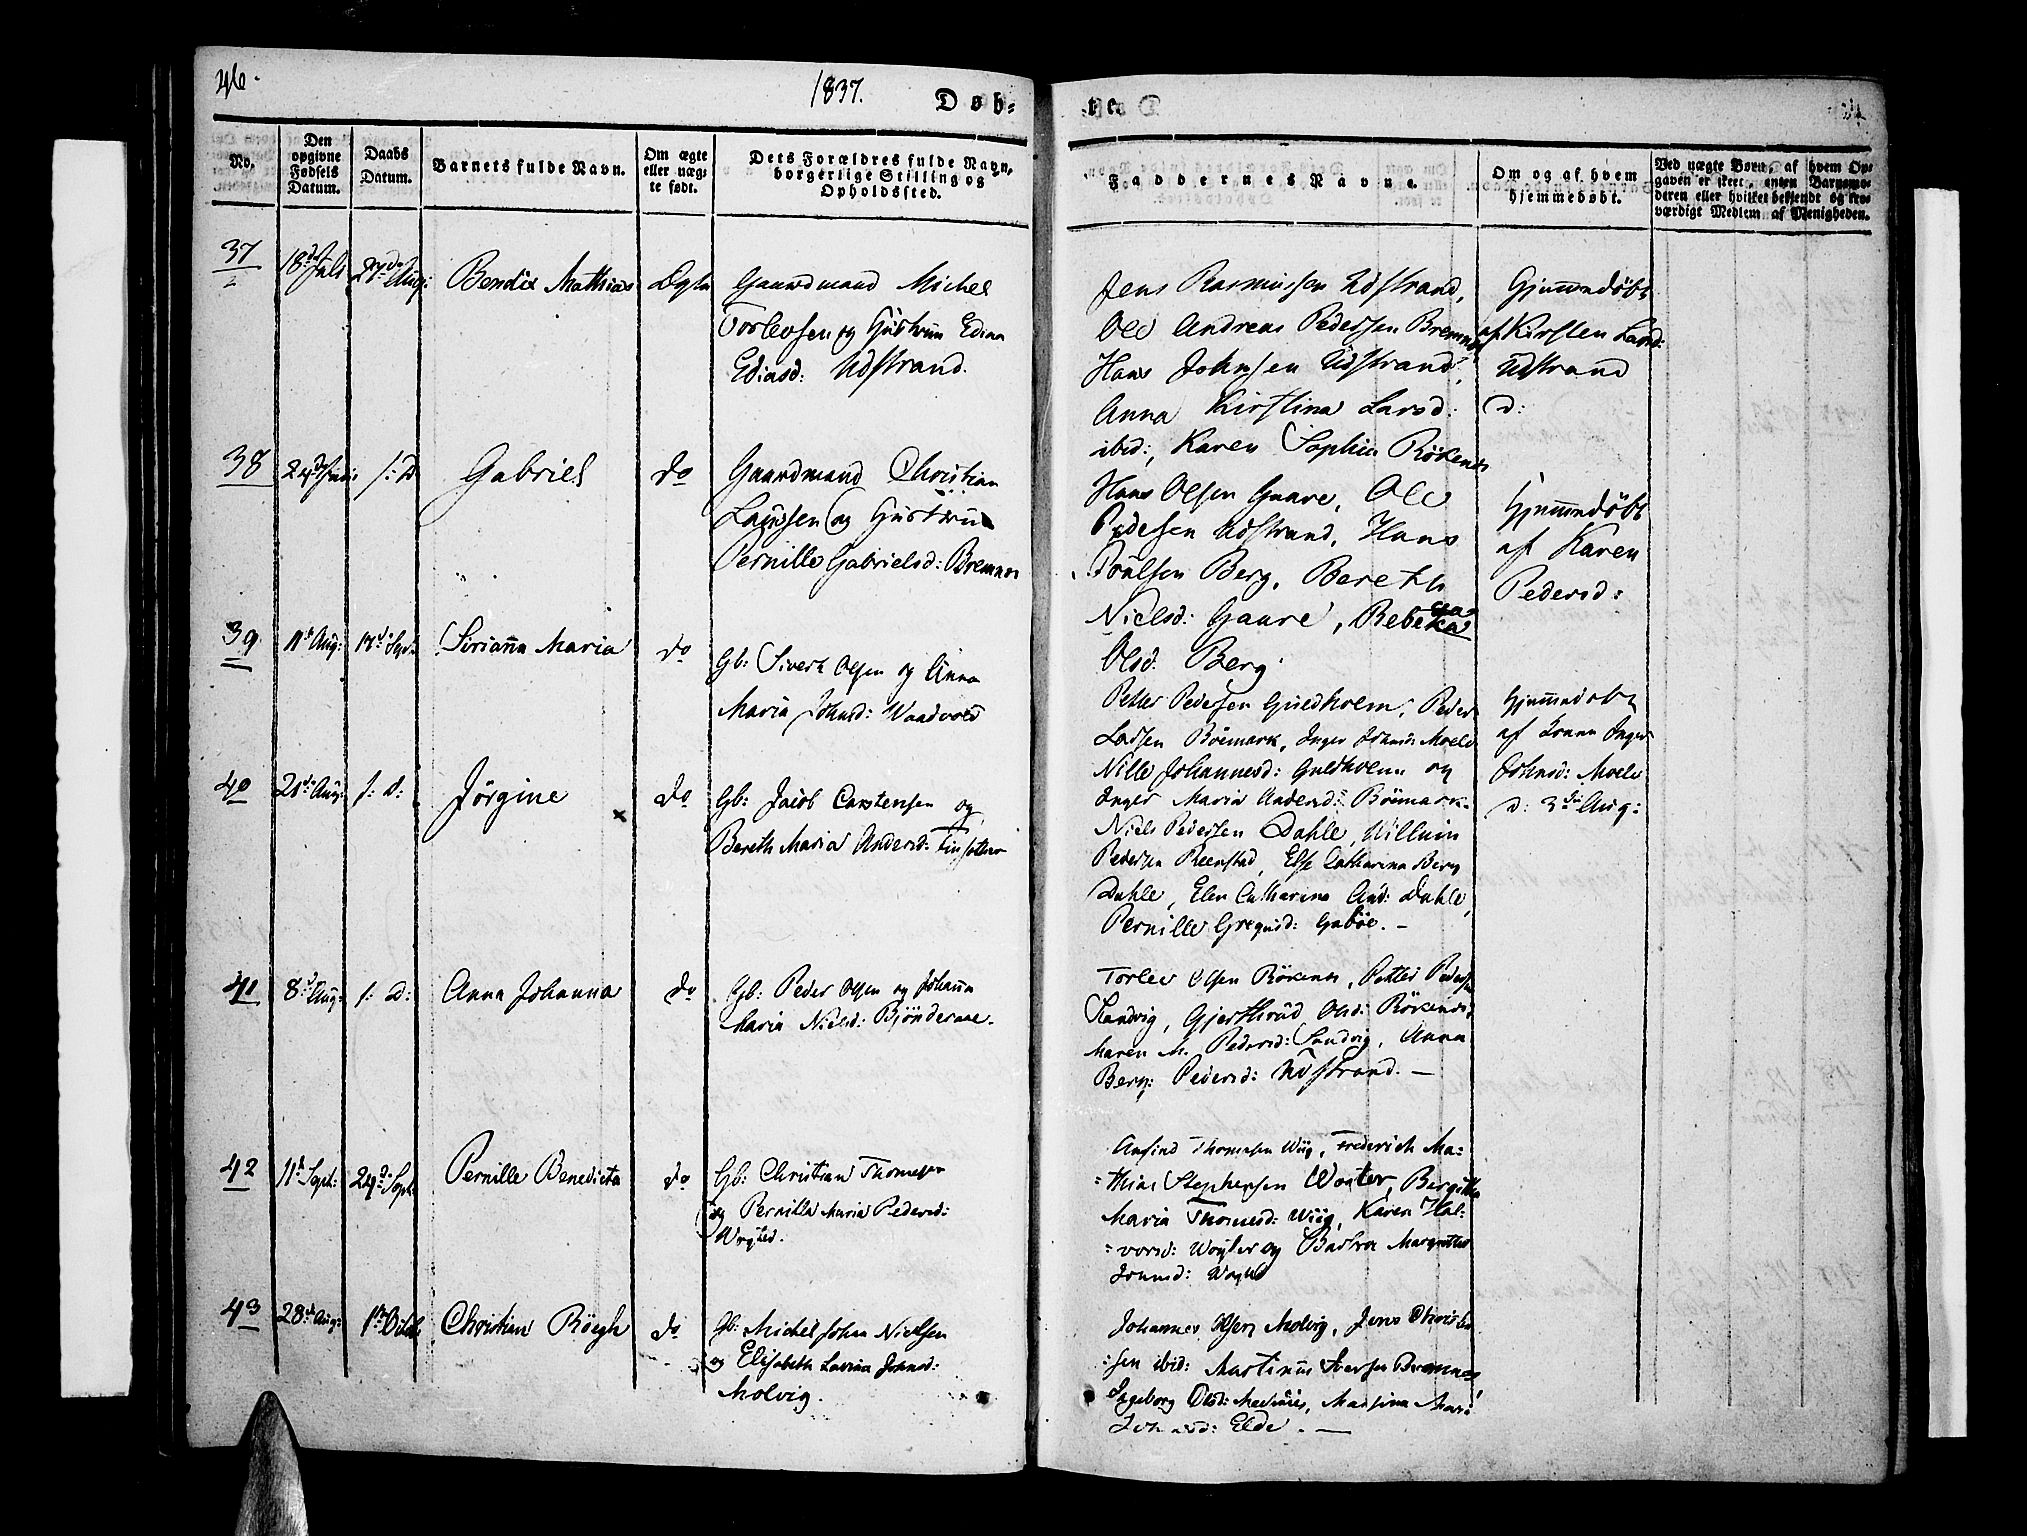 46.
1837.
Døb-
te
No.
Den opgivne Fødsels Datum.
Daabs Datum.
Barnets fulde Navn.
Om ægte eller uægte født.
Dets Forældres fulde Navn, borgerlige Stilling og Opholdssted.
Faddernes Navne.
Om og af hvem hjemmedøbt.
Ved uægte Børn, af hvem Opgaven er skeet, enten Barnemoderen eller hvilket bekjendt og troværdigt Medlem af Menigheden.
37
18de Juli
27de Aug:
Bendix Mathias
Ægte
Gaardmand Michel
Torlevsen og Hustrue Edina
Ediasd: Udstrand.
Jens Rasmussen Udstrand,
Ole Andreas Pedersen Bremnes
Hans Johnsen Udstrand,
Anna Kirstina Larsd:
ibid:, Karen Sophia Rökenes
Gjemmedöbt
af Kirsten Larsd:
Udstrand
d:
38
s: D
Gabriel
do
Gaardmand Christian
og Hustrue
Pernille Gabrielsd: Bremnes
Hans Olsen Gaare, Ole
Pedersen Udstrand, Hans
Poulsen Berg, Bereth
Nielsd: Gaare, Rebekka
Olsd. Berg.
Gjemmedöbt
af Karen
Pedersd:
39
11te Aug:
17de Sept:
Sirianna Maria
do
Gb: Sivert Olsen og Anna
Maria Johnsd: Waadvold
Petter Pedersen Guldholm, Peder
Larsen Böemark, Inger Johnsd: Moele
Nille Johannesd: Guldholm og
Inger Maria Andersd: Böemark
Gjemmedobt
af Inger
Johnsd: Moele
d: 3die Aug:
40
21de Aug:
s: d:
Jörgine
do
Gb: Jacob Carstensen og
Bereth Maria Andersd: Finsæther
Niels Pedersen Dahle, Willum
Pedersen Reenstad, Else Catharina Berg
Dahle, Elen Catharina And: Dahle,
Pernille Gregusd: Gaböe. –
41
8de Aug:
s: D:
Anna Johanna
do
Gb: Peder Olsen og Johanna
Maria Nielsd: Bjönderaae.
Torlev Olsen Rökenes, Petter Peders
Sandvig, Gjerthrud Olsd: Rökenes,
Maren M. Pedersd: Sandvig, Anna
Berg: Pedersd: Udstrand. –
42
11te Sept:
24de Sept:
Pernille Benedicta
do
Gb: Christian Thomesen
og Pernilla Maria Pedersd:
Anfind Thomesen Wiig, Frederich Ma-
thias Stephensen Wogter, Bergitha
Maria Thomesd: Wiig, Karen Hal-
vorsd: Wogter og Barbra Margrethe
43
28de Aug:
1ste Octb:
Christian Röegh
do
Gb: Michel John Nielsen
og Elisabeth Lavina Johnsd:
Molvig.
Johannes Olsen Molvig, Jens Christen
sen ibid: Martinus Iversen Bremnes,
Ingeborg Olsd: Martina Marie
Elde. –